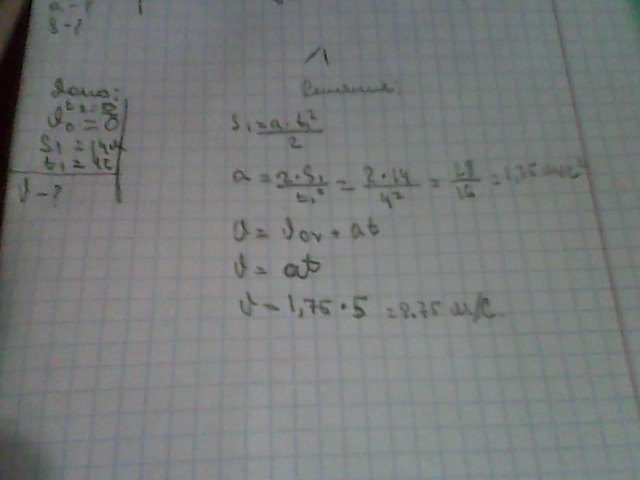 a - ?
S - ?
1
Дано:
t₂ = 5
V₀ = 0
S₁ = 14 м
t₁ = 4с
V - ?
Решение.
S₁ = a·t₁²/2
a = 2·S₁/t₁² = 2·14/4² = 28/16 = 1,75 м/с²
V = V₀ₓ + at
V = at
V = 1,75·5 = 8.75 м/с.